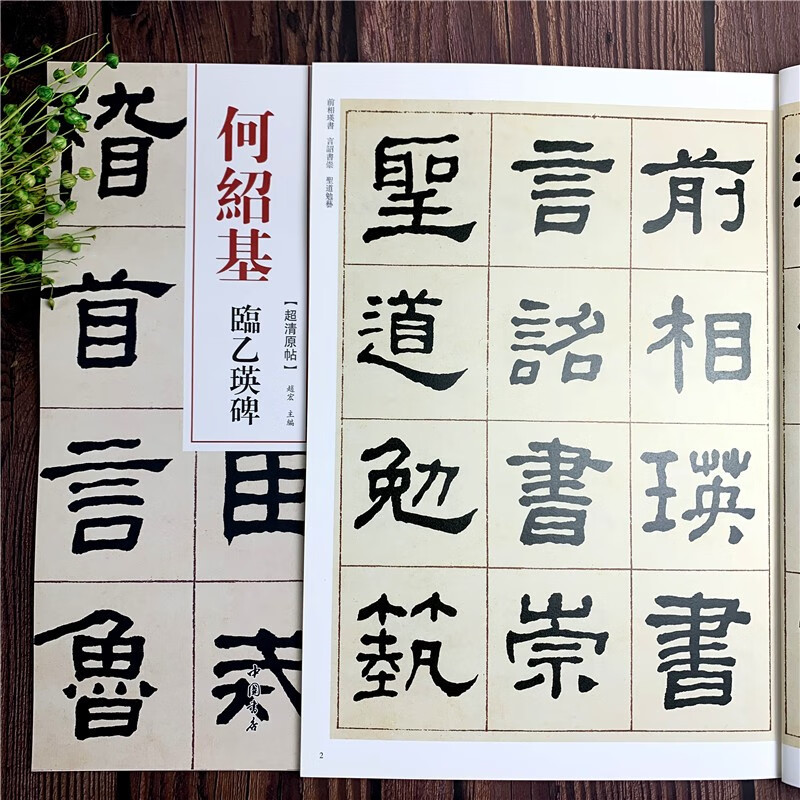 稽首言魯
何紹基
臨乙瑛碑
【超清原帖】
趙宏 主編
中國書店
前相瑛書 言詔書崇 聖道勉藝
前相瑛書
言詔書崇
聖道勉藝
2